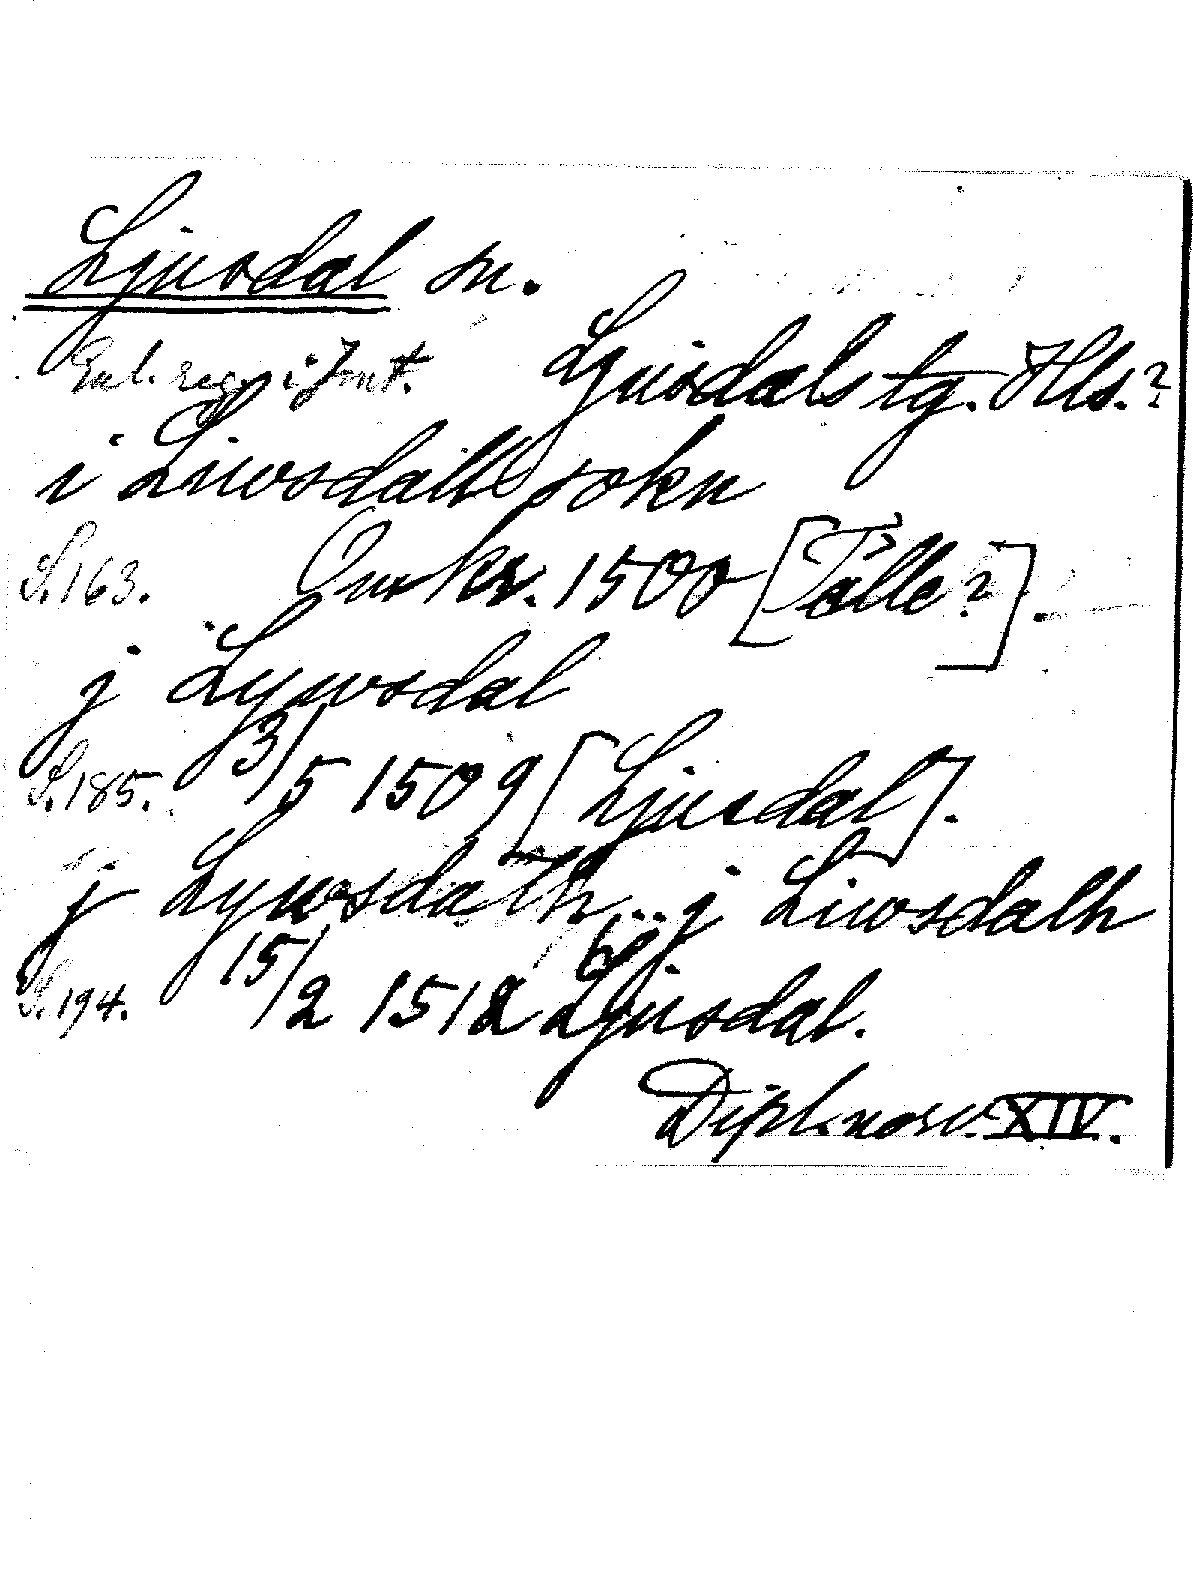 Ljusdal sn.
Enl. reg. i Jmt. Ljusdals tg. Hls.?
i Liwsdall sokn
S. 163. Omkr. 1500 [Tälle?].
j Lywsdal
S. 185. 3/5 1509 [Ljusdal].
j Lywsdalh... j Liwsdalh
S. 194. 15/2 1512 Ljusdal.
Dipl. norv. XIV.